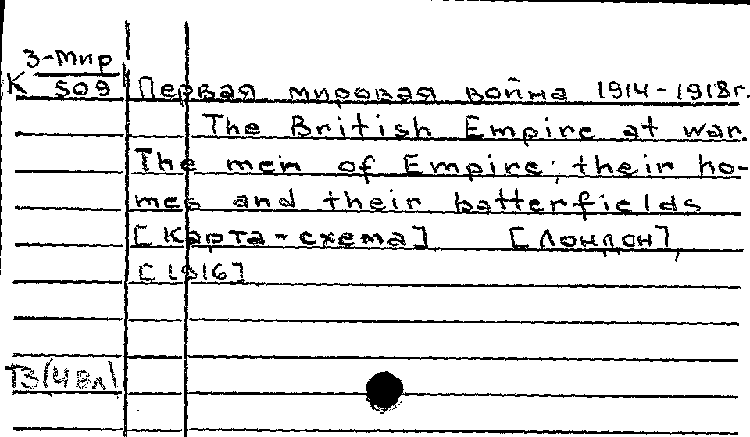 3-Мир
К 509 Первая мировая война 1914-1918г.
The British Empire at war.
The men of Empire; their ho-
mes and their batterfields
[Карта-схема] [Лондон],
[1916]
ТЗ(4Вл)